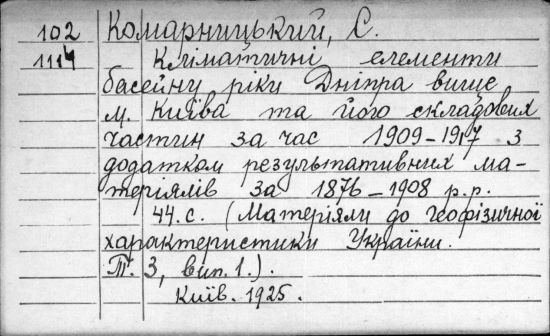 102 Комарницький, С.
1114 Кліматичні елементи
басейну ріки Дніпра вище
м. Київа та його складових
частин за час 1909-1917 з
додатком результативних ма-
теріялів за 1876-1908 р.р.
44. с. (Матеріяли до геофізичної
характеристики України.
Т. 3, вип. 1.).
Київ. 1925.